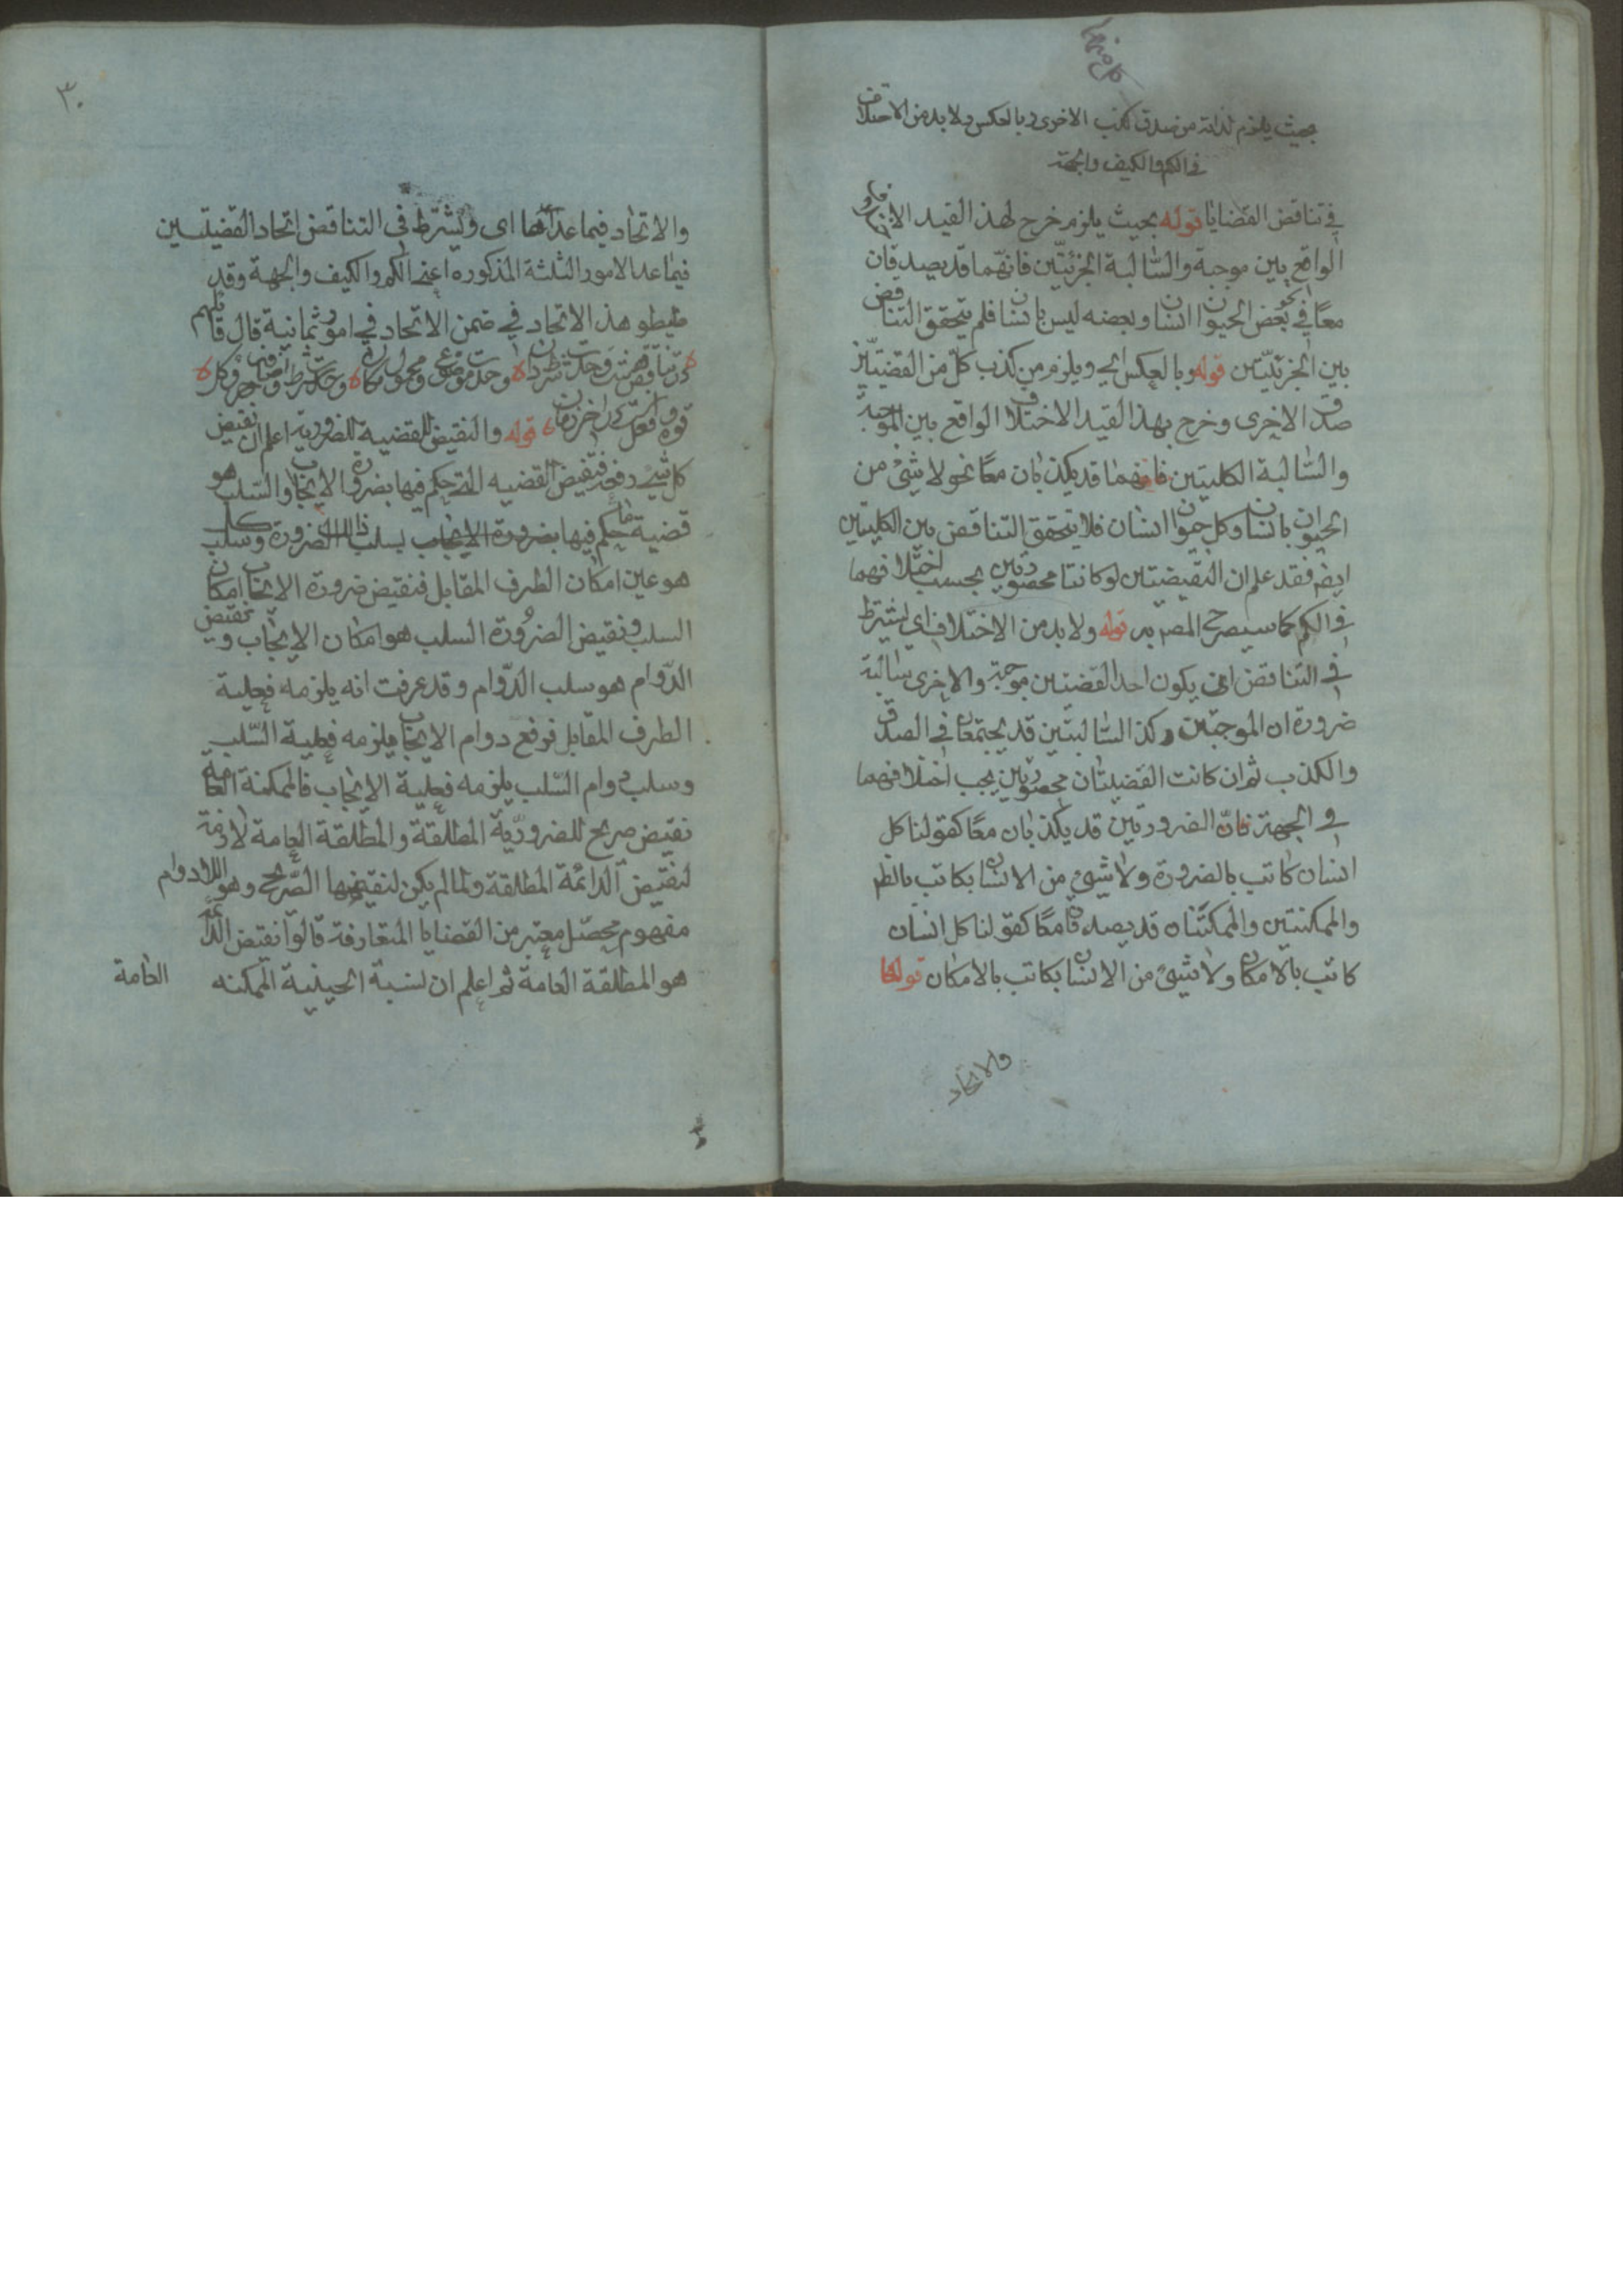 بحيث يلزم لذاته من صدق كذب الاخرى وبالعكس ولا بد من الاختلاف
في الكم والكيف والجهة
في تناقض القضايا قوله بحيث يلزم خرج لهذ القيد
الواقع بين موجبة والسالبة الجزئيتين فانهما قد يصدقان
معا في نحو بعض الحيوان انسان وبعضه ليس بانسان فلم يتحقق التناقض
بين الجزئيتين قوله وبالعكس اي ويلزم من كذب كل من القضيتين
صدق الاخرى وخرج بهذا القيد الاختلاف الواقع بين الموجبة
والسالبة الكليتين فانهما قد يكذبان معا نحو لا شئ من
الحيوان بانسان وكل حيوان انسان فلا يتحقق التناقض بين الكليتين
ايضم فقد علم ان النقيضتين لو كانتا محصورتين بحسب اختلافهما
في الكم كما سيصرح المصم به قوله ولا بد من الاختلاف اي يشترط
في التناقض ان يكون احد القضيتين موجبة والاخرى سالبة
ضرورة ان الموجبتين وكذا السالبتين قد يجتمعان في الصدق
والكذب ثم ان كانت القضيتان محصورتين يجب اختلافهما
في الجهة فان الضروريتين قد يكذبان معا كقولنا كل
انسان كاتب بالضرورة ولا شئ من الانسان بكاتب بالظم
والممكنتين والممكنتان قد يصدقان معا كقولنا كل انسان
كاتب بالامكان ولا شئ من الانسان بكاتب بالامكان قوله
والاتحاد
٣٠
والاتحاد فيما عداها اى ويشترط فى التناقض اتحاد القضيتين
فيما عدا الامور الثلثة المذكوره اعنى الكم والكيف والجهة وقد
ضبطو هذ الاتحاد في ضمن الاتحاد في امور ثمانية قال قائلهم
در تناقض هشت وحدت شرط دان وحدت موضوع ومحمول ومكان وحدت شرط واضافه جزو وكل
قوه وفعل است در اخر زمان قوله والنقيض للقضيه للضرورية اعلم ان نقيض
كل شئ رفعه فنقيض القضيه التى حكم فيها بضرورة الايجاب او السلب هو
قضية حكم فيها بضرورة الايجاب بسلب الضرورة وسلب كل
هو عين امكان الطرف المقابل فنقيض ضرورة الايجاب امكان
السلب ونقيض الضرورة السلب هو امكان الايجاب ونقيض
الدوام هو سلب الدوام وقد عرفت انه يلزمه فعلية
الطرف المقابل فرفع دوام الايجاب يلزمه فعلية السلب
وسلب دوام السلب يلزمه فعلية الايجاب فالممكنة العامة
نقيض صريح للضرورية المطلقة والمطلقة العامة لازمة
لنقيض الدائمة المطلقة ولما لم يكن لنقيضها الصريح وهو اللادوام
مفهوم محصل معتبر من القضايا المتعارفة قالوا نقيض الدائمة
هو المطلقة العامة ثم اعلم ان نسبة الحينية الممكنه
العامة